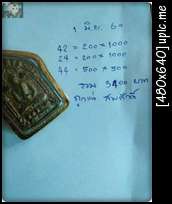 1 มิ.ย. 60
42 = 200 x 1000
24 = 200 x 1000
44 = 500 x 500
รวม 3400 บาท
[480x640] upic.me